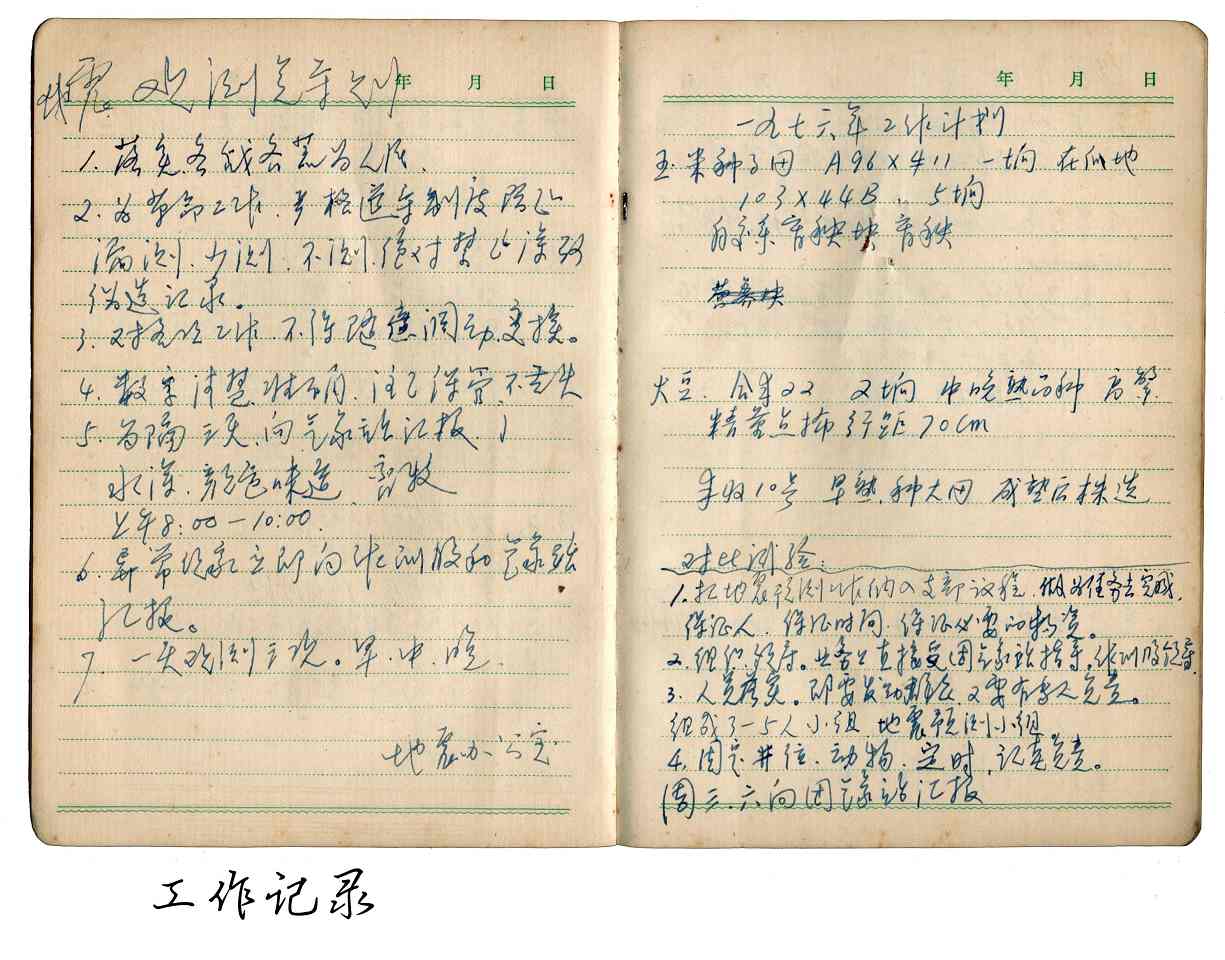 年 月 日
地震观测员守则
1. 落实备战备荒为人民.
2. 为革命工作. 严格遵守制度防止
漏测. 少测. 不测. 绝对禁止涂改
伪造记录。
3. 工作 不得随意调动变换。
4. 数字清楚准确, 注意保管不丢失
5. 向气象站汇报
水深. 颜色味道
上午8:00—10:00.
6. 异常现象立即向 训股和气象站
汇报。
7. 一天观测三次。早. 中. 晚.
地震办公室
年 月 日
一九七六年工作计划
玉米种子田 A96×411 一垧 在瓜地
103×44B 〃 5垧
自交系育秧块育秧
营养块
大豆. 22 2垧 中晚熟品种
精量点播 行距70cm
丰收10号 早熟. 种大田 成熟后株选
对比试验:
1. 把地震预测工作纳入支部议程. 做为任务去完成.
保证人. 保证时间. 保证必要的物资。
2. 组织领导。业务上直接受团气象站指导。 训股领导
3. 人员落实。即要发动群众. 又要有专人负责。
组成3—5人小组 地震预测小组.
4. 固定井位. 动物. 定时. 记 负责。
(周三.六向团气象站汇报
工作记录